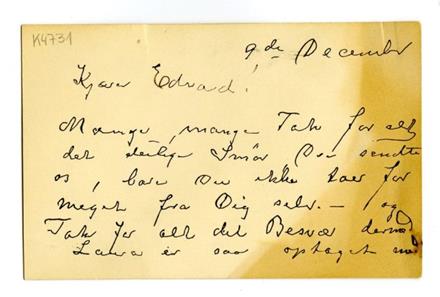 K4731
9de December
Kjære Edvard!
Mange, mange Tak for alt
det deilige Smör Du sendte
os, bare Du ikke tar for
meget fra Dig selv. – og
Tak for alt det Besvær dermed
Laura er saa optaget med